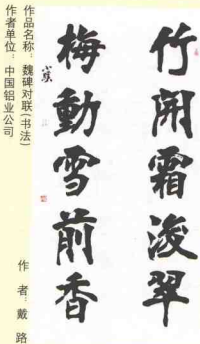 竹開霜後翠
梅動雪前香
作品名称：魏碑对联(书法)
作者单位：中国铝业公司
作者：戴路